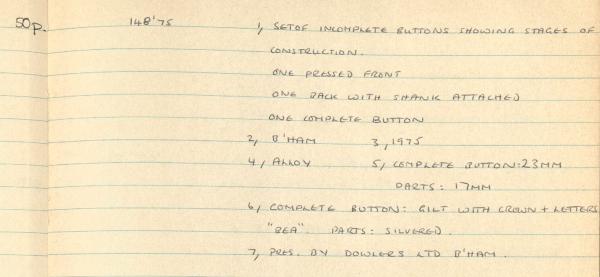 50p. 148'75 1, SET OF INCOMPLETE BUTTONS SHOWING STAGES OF
CONSTRUCTION.
ONE PRESSED FRONT
ONE BACK WITH SHANK ATTACHED
ONE COMPLETE BUTTON
2, B'HAM 3, 1975
4, ALLOY 5, COMPLETE BUTTON: 23MM
PARTS: 17MM
6, COMPLETE BUTTON: GILT WITH CROWN + LETTERS
"BEA". PARTS: SILVERED.
7, PRES. BY DOWLERS LTD B'HAM.